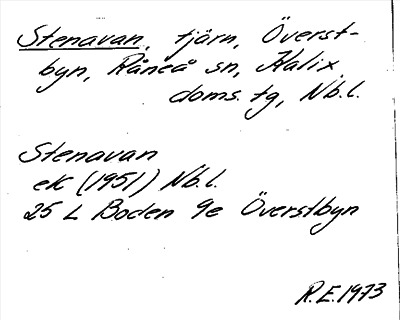 Stenavan, tjärn, Överst-
byn, Råneå sn, Kalix
doms. tg, Nb.l.
Stenavan
ek (1951) Nb.l.
25 L Boden 9e Överstbyn
R.E. 1973